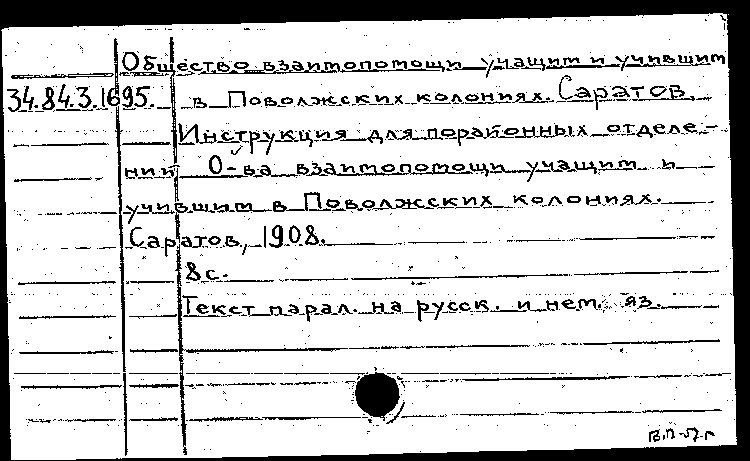 Общество взаимопомощи учащим и учившим
34.84.3.1695. в Поволжских колониях. Саратов.
Инструкция для порайонных отделе-
ний О-ва взаимопомощи учащим и
учившим в Поволжских колониях.
Саратов, 1908.
8 с.
Текст парал. на русск. и нем. яз.